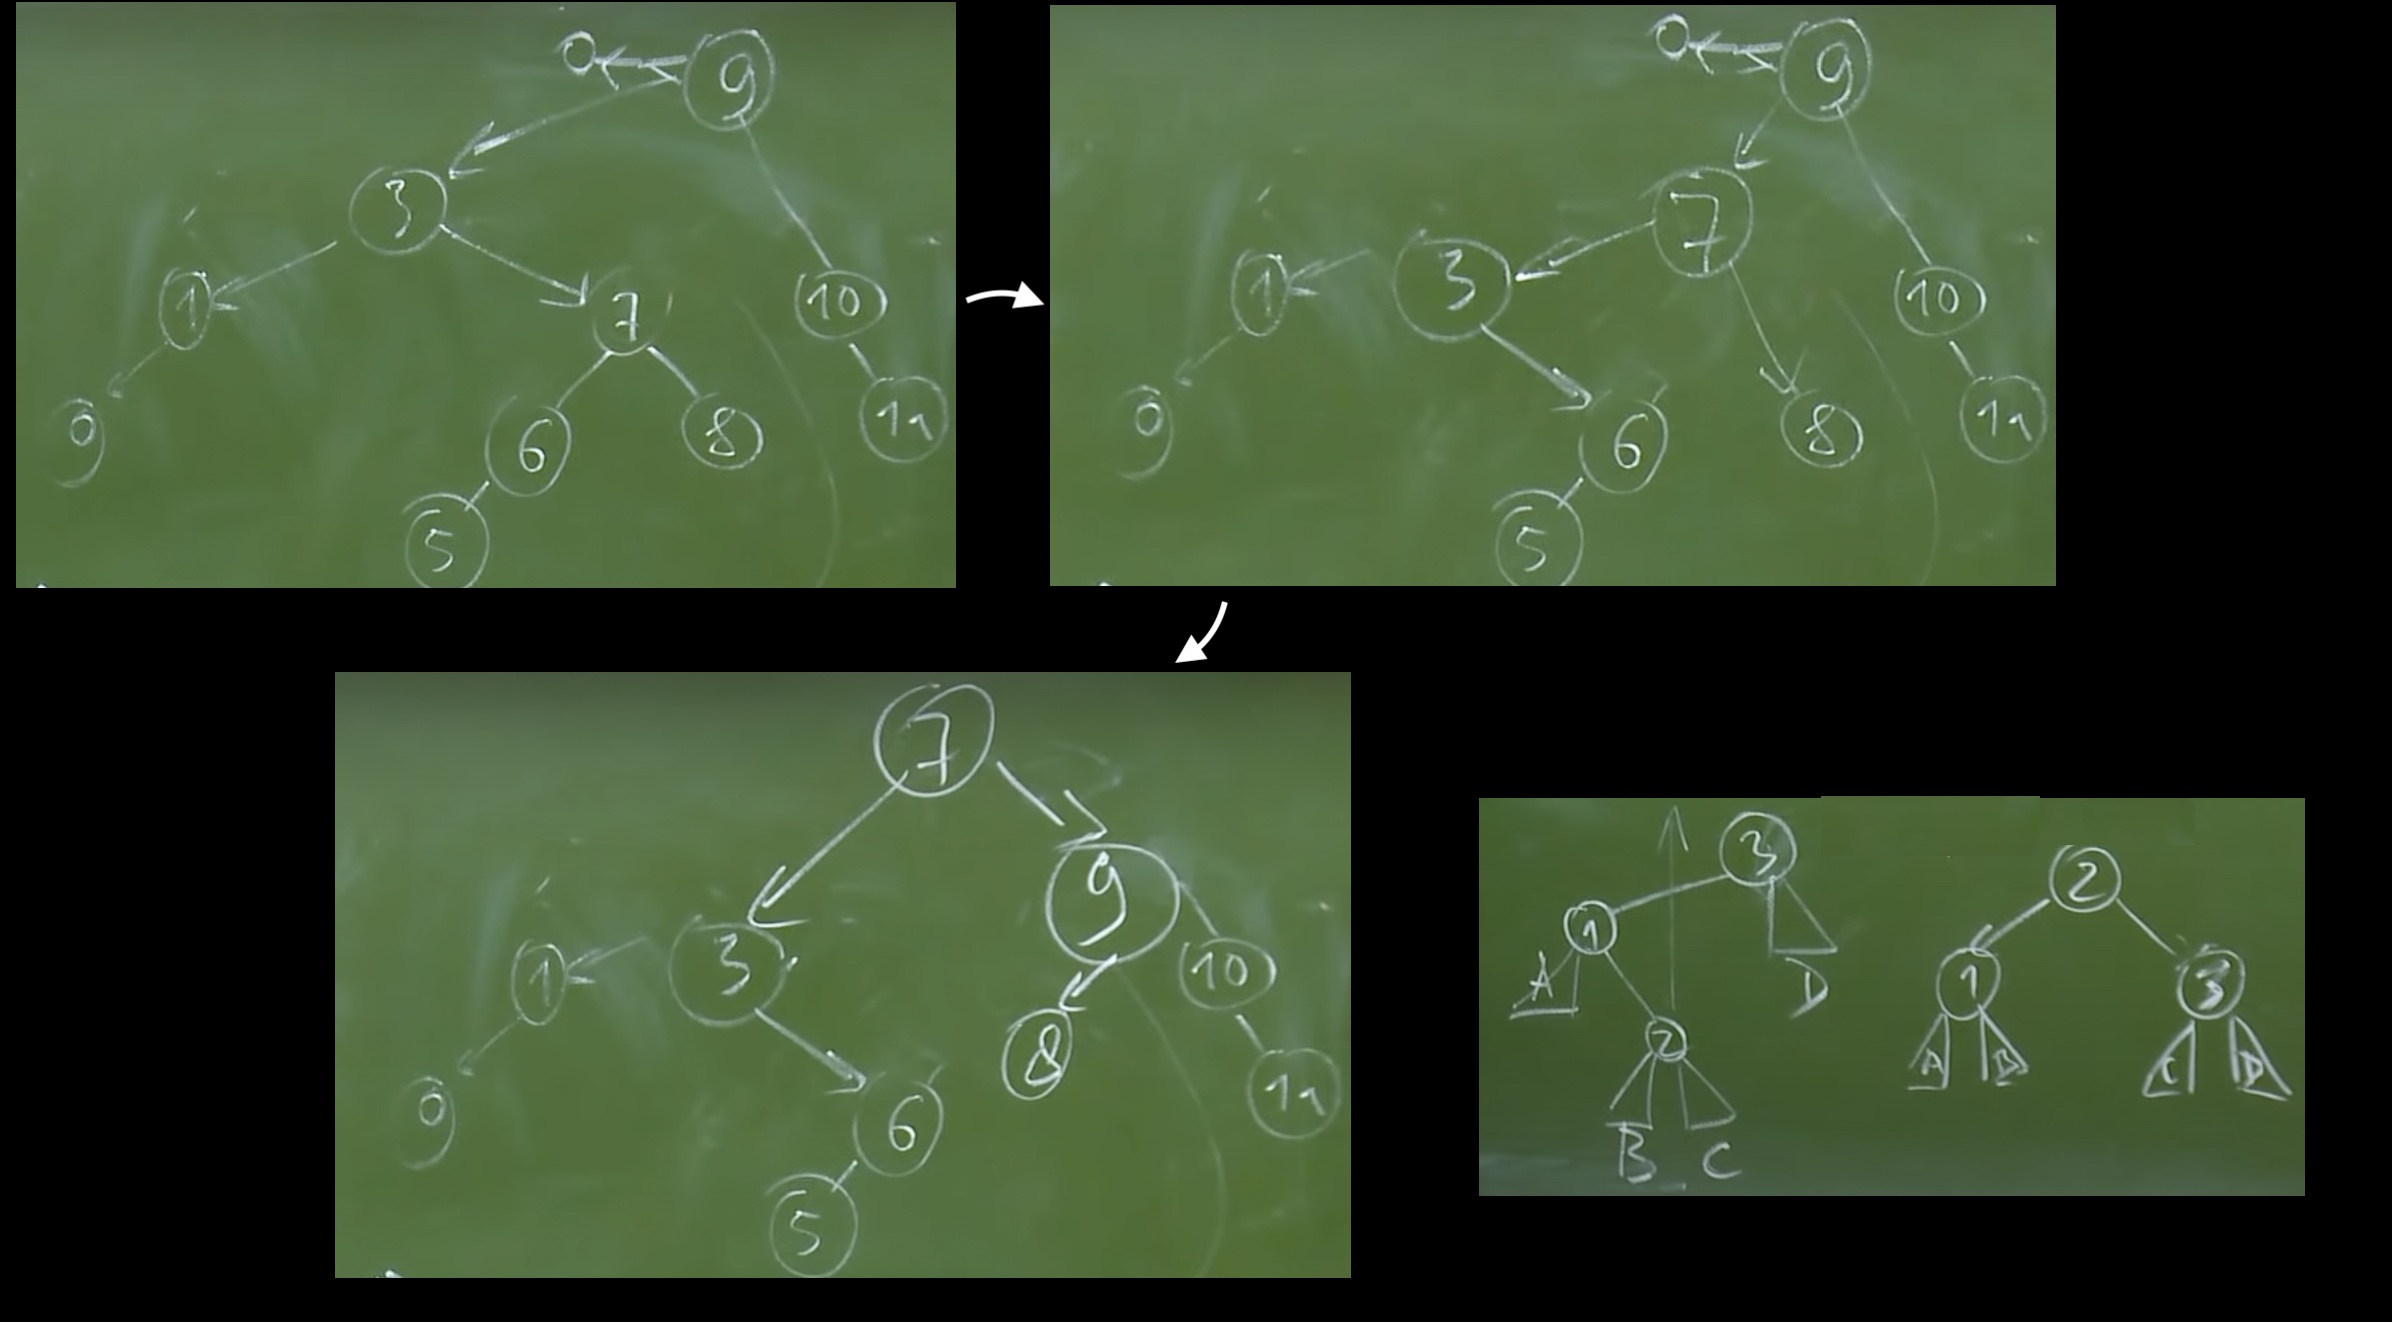 9
3
1
7
10
0
6
8
11
5
9
7
1
3
10
0
6
8
11
5
7
9
3
1
10
0
8
6
11
5
3
1
A
D
2
B C
2
1 3
A B C D